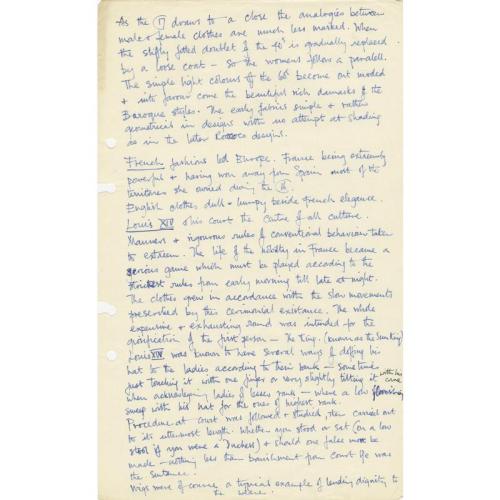 As the 17 draws to a close the analogies between
male & female clothes are much less marked. When
the stiffly fitted doublet of the 40s is gradually replaced
by a loose coat – so the womens follow a paralell.
The single light colours of the 60s become out moded
& into favour come the beautiful rich damasks of the
Baroque styles. The early fabrics simple & rather
geometrical in designs with no attempt at shading
as in the later Rococo designs.
French fashions led Europe. France being extremely
powerful & having won away from Spain most of the
territories she owned during the 16.
English clothes dull & lumpy beside french elegance.
Louis XIV & his court the centre of all culture.
Manners & rigourous rules of conventional behaviour taken
to extream. The life of the nobility in France became a
serious game which must be played according to the
strickest rules from early morning till late at night.
The clothes grew in accordance with the slow movements
prescribed by this cerimonial existance. The whole
expensive & exhausting round was intended for the
glorification of the first person – The King. (known as the Sun King)
Louis XIV was known to have several ways of doffing his
hat to the ladies according to their rank – sometimes
just touching it with one finger or very slightly tilting it with his cane
when acknowledging ladies of lesser rank – where a low flourishing
sweep with his hat for the ones of highest rank.
Procedure at court was followed & studied, then carried out
to its uttermost length. Whether you stood or sat (on a low
stool if you were a Duchess) & should one false move be
made – nothing less than banishment from court life was
the sentence.
Wigs were of course a typical example of lending dignity to
the wearer.